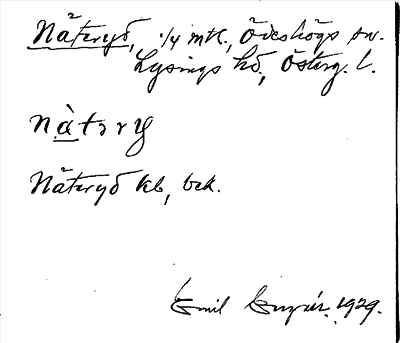 Näteryd, 1/4 mtl., Ödeshögs sn.
Lysings hd, Österg. l.
nàtsry
Näteryd kb, bek.
Emil 1929.